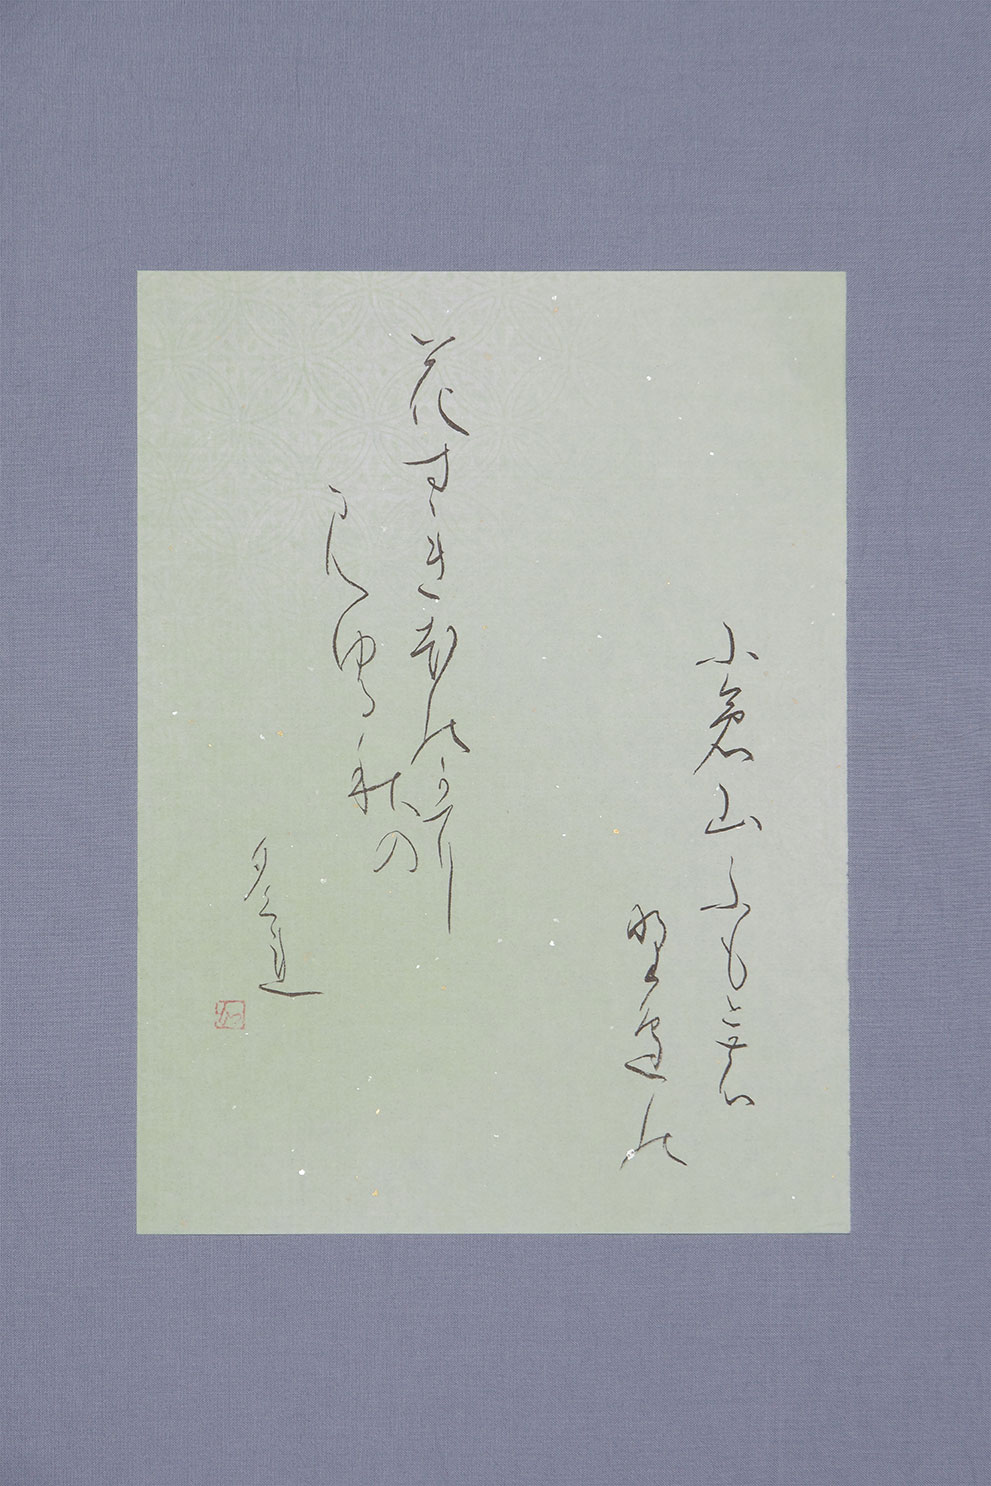 小倉山ふもとの
野邊の
花すゝきほのかに
見ゆる秋の
夕ぐれ